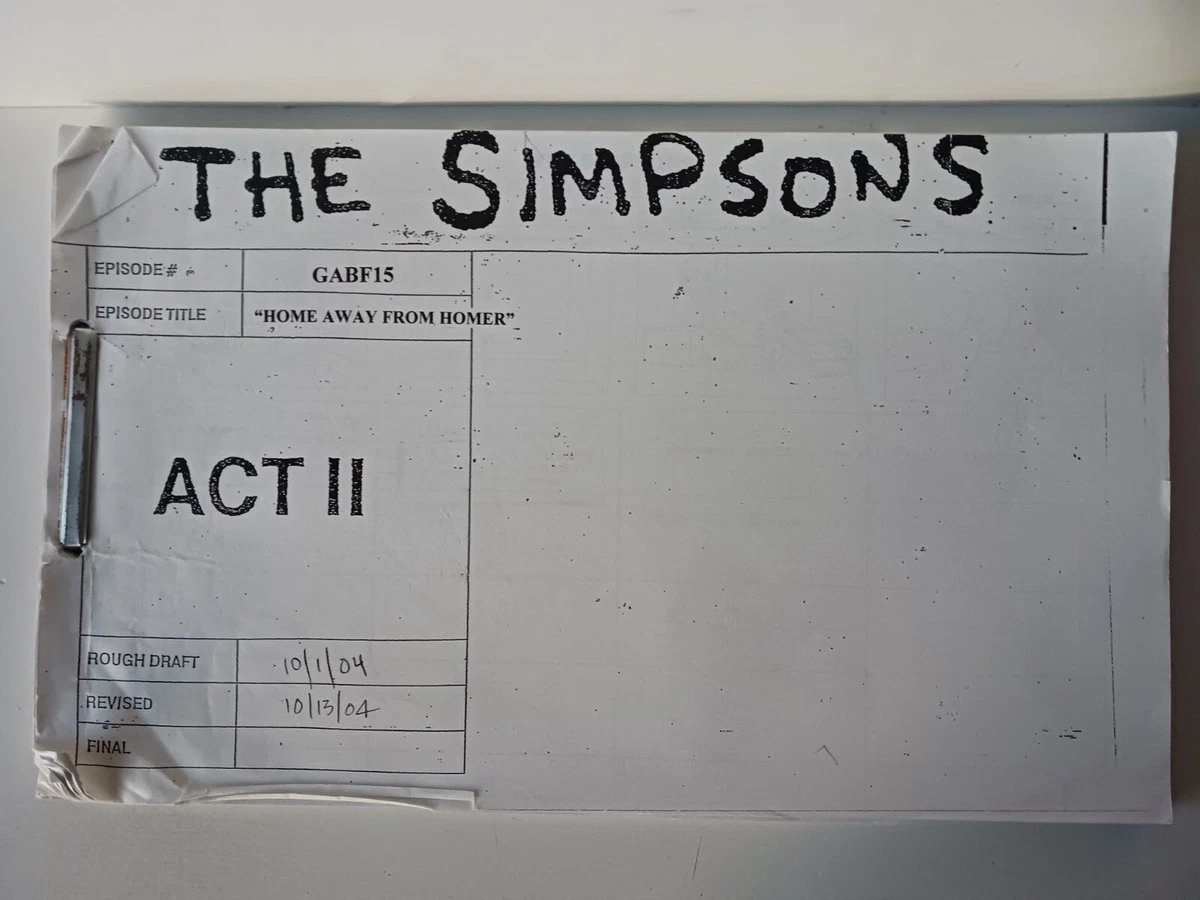 THE SIMPSONS
EPISODE # GABF15
EPISODE TITLE “HOME AWAY FROM HOMER”
ACT II
ROUGH DRAFT 10/1/04
REVISED 10/13/04
FINAL